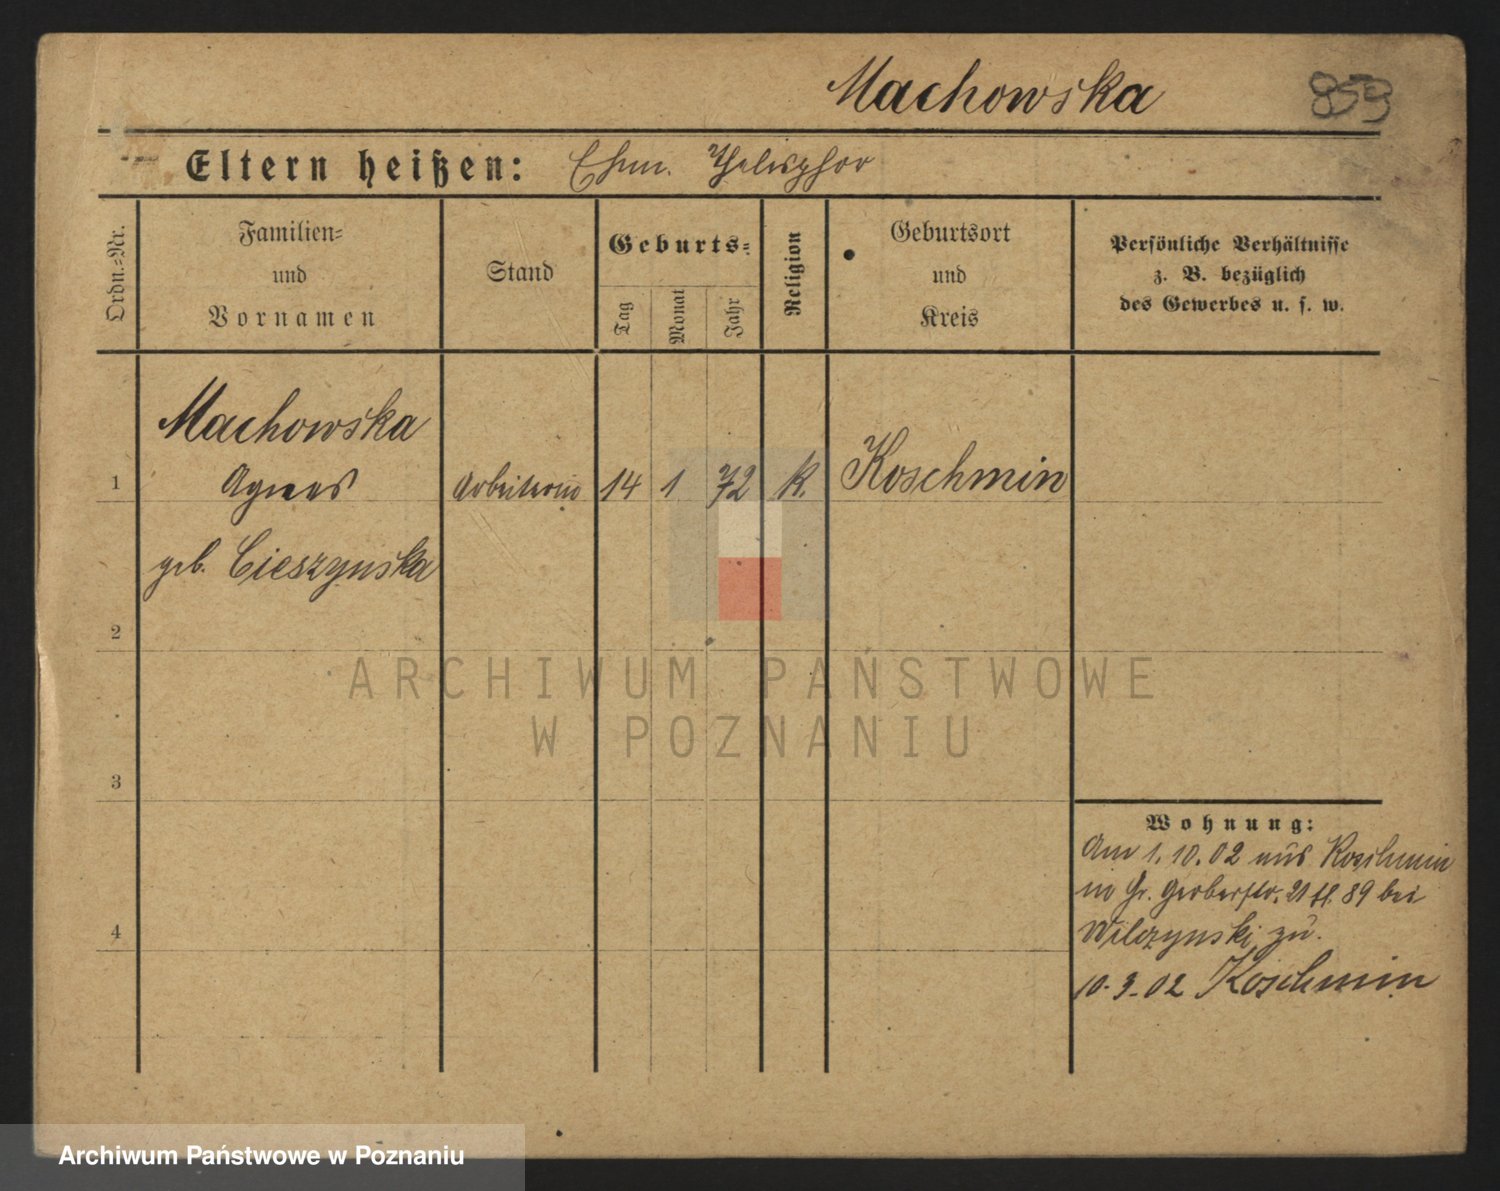 Machowska
859
Eltern heißen: Ehm. Thelesphor
Ordn.-Nr.
Familien-
und
Vornamen
Stand
Geburts-
Tag
Monat
Jahr
Religion
Geburtsort
und
Kreis
Persönliche Verhältnisse
z. B. bezüglich
des Gewerbes u. s. w.
Machowska
1 Agnes Arbeiterin 14 1 72 K. Koschmin
geb. Cieszynska
2
3
4
Wohnung:
Am 1. 10. 02 aus Koschmin
in Gr. Gerberstr. 21 II. 89 bei
Wilczynski zu.
10. 3. 02 Koschmin
ARCHIWUM PAŃSTWOWE
W POZNANIU
Archiwum Państwowe w Poznaniu